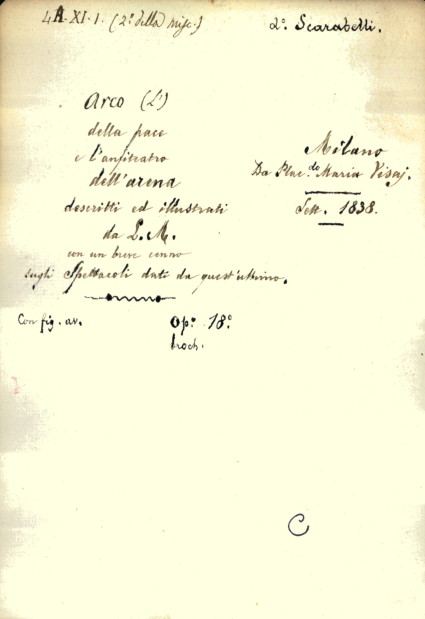 4A-XI-1. (2º della misc.)
2º. Scarabelli.
Arco (L')
della pace
e l'anfiteatro
dell'arena
descritti ed illustrati
da L. M.
con un breve cenno
sugli Spettacoli dati da quest'ultimo.
Milano
Da Plac.do Maria Visaj.
1838.
Con fig. av.
Op.º 18.º
broch.
C